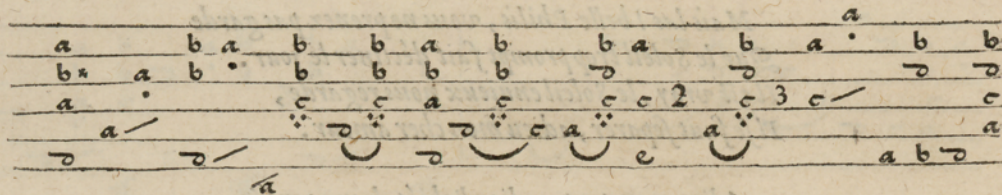 a
a b a b b a b b a b a b b
b a b b b b b d d d d
a c c a c c c 2 c 3 c c
a d d c a a a
d d d e a b d
a